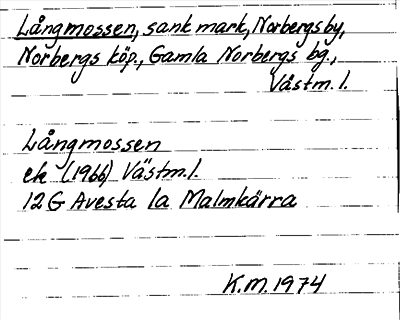 Långmossen, sank mark, Norbergsby,
Norbergs köp., Gamla Norbergs bg.,
Västm. l.
Långmossen
ek (1966) Västm. l.
12 G Avesta 1a Malmkärra
K.M. 1974